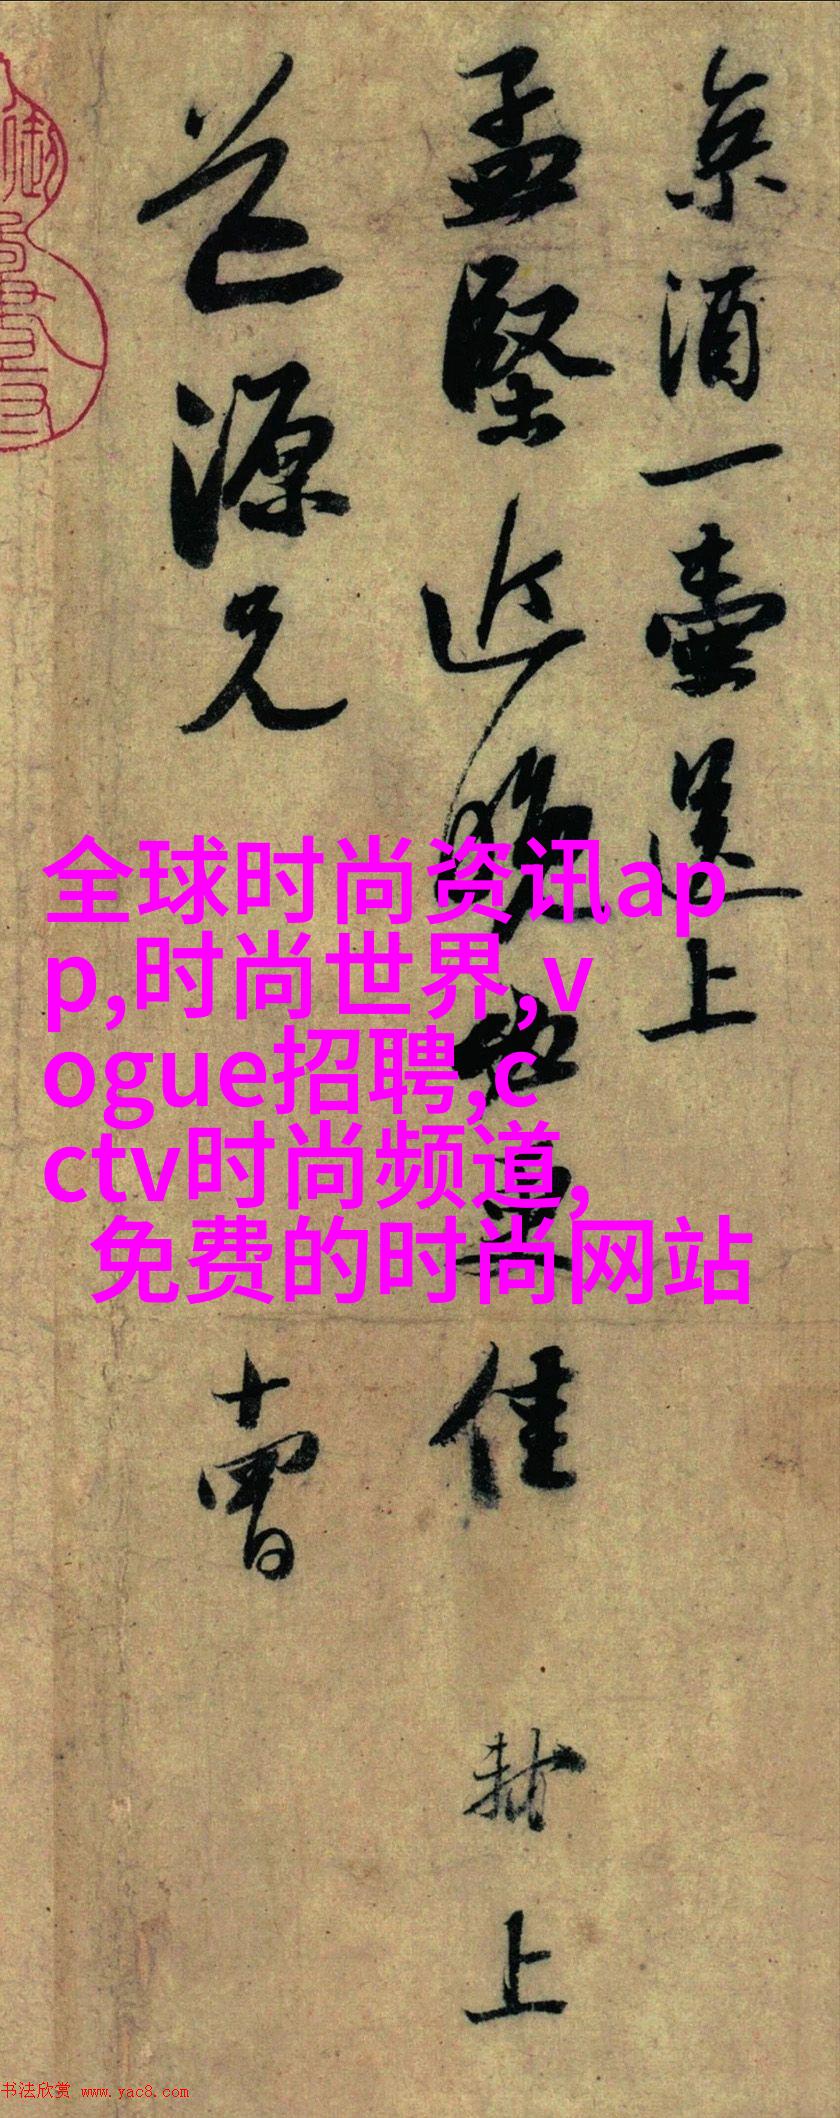 京酒一壺送上
孟堅近晚必更佳 軾上
道源兄
十四日
全球时尚资讯ap
p,时尚世界,v
ogue招聘,c
ctv时尚频道,
免费的时尚网站
书法欣赏 www.yac8.com